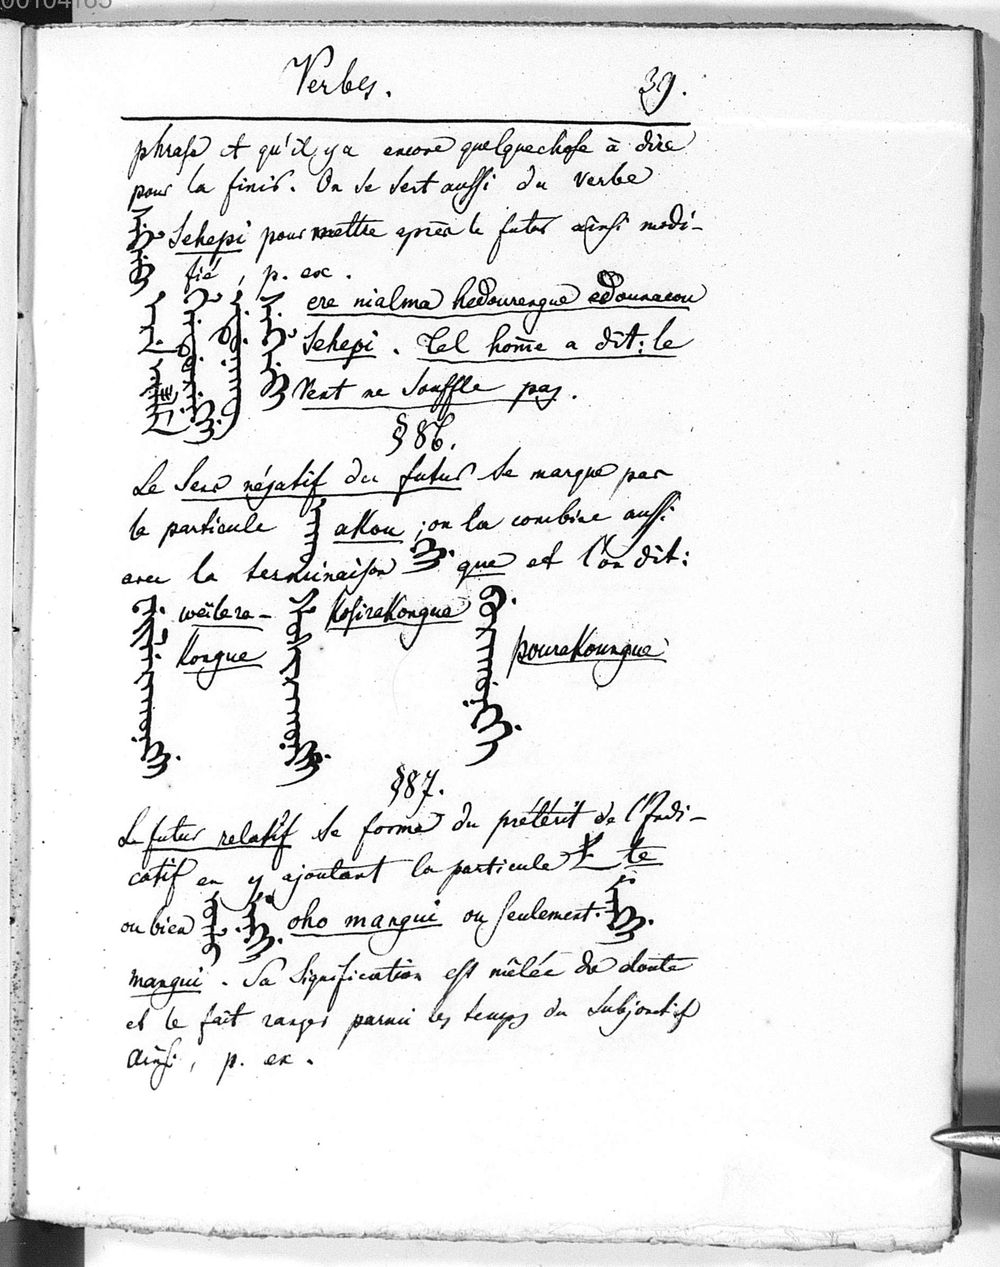 Verbes. 39.
phrase et qu'il y a encore quelquechose à dire
pour la finir. On se sert aussi du verbe
Sehepi pour mettre après le futur ainsi modi-
fié, p. ex.
ere nialma hedourengue edounacou
Sehepi. Tel hom̄e a dit: le
Vent ne souffle pas.
§ 86.
Le Sens négatif du futur se marque par
la particule akou; on la combine aussi
avec la terminaison que et l'on dit:
weilera- kosirakongue
kongue pourakoungue
§ 87.
Le futur relatif se forme du prétérit de l'Indi-
catif en y ajoutant la particule te
ou bien oho mangui ou seulement
mangui. Sa signification est mêlée de doute
et le fait ranger parmi les temps du Subjonctif
ainsi, p. ex.